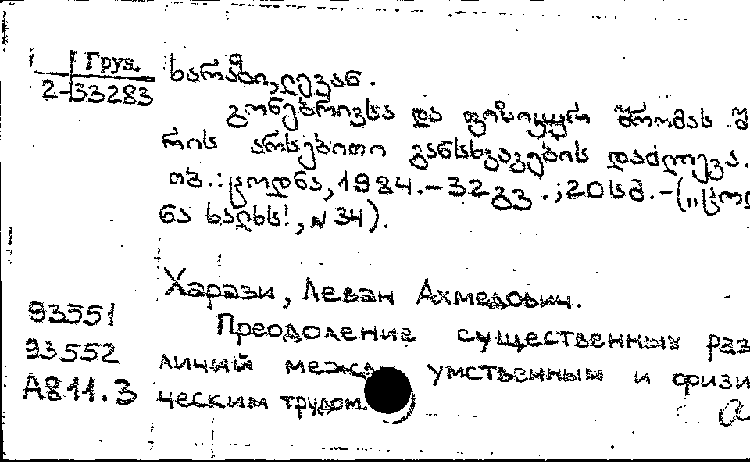 Груз.
2-33283
ხარაზი, ლევან.
გონებრივსა და ფიზიკურ შრომას შ
რის არსებითი განსხვავების დაძლევა.
თბ.: ცოდნა, 1984.- 32 გვ.; 20 სმ.-(„ცოდ
ნა ხალხს!, N 34).
Харази, Леван Ахмедович.
93551
Преодоление существенных раз
93552
личий между умственным и физи
А811.3
ческим трудом.